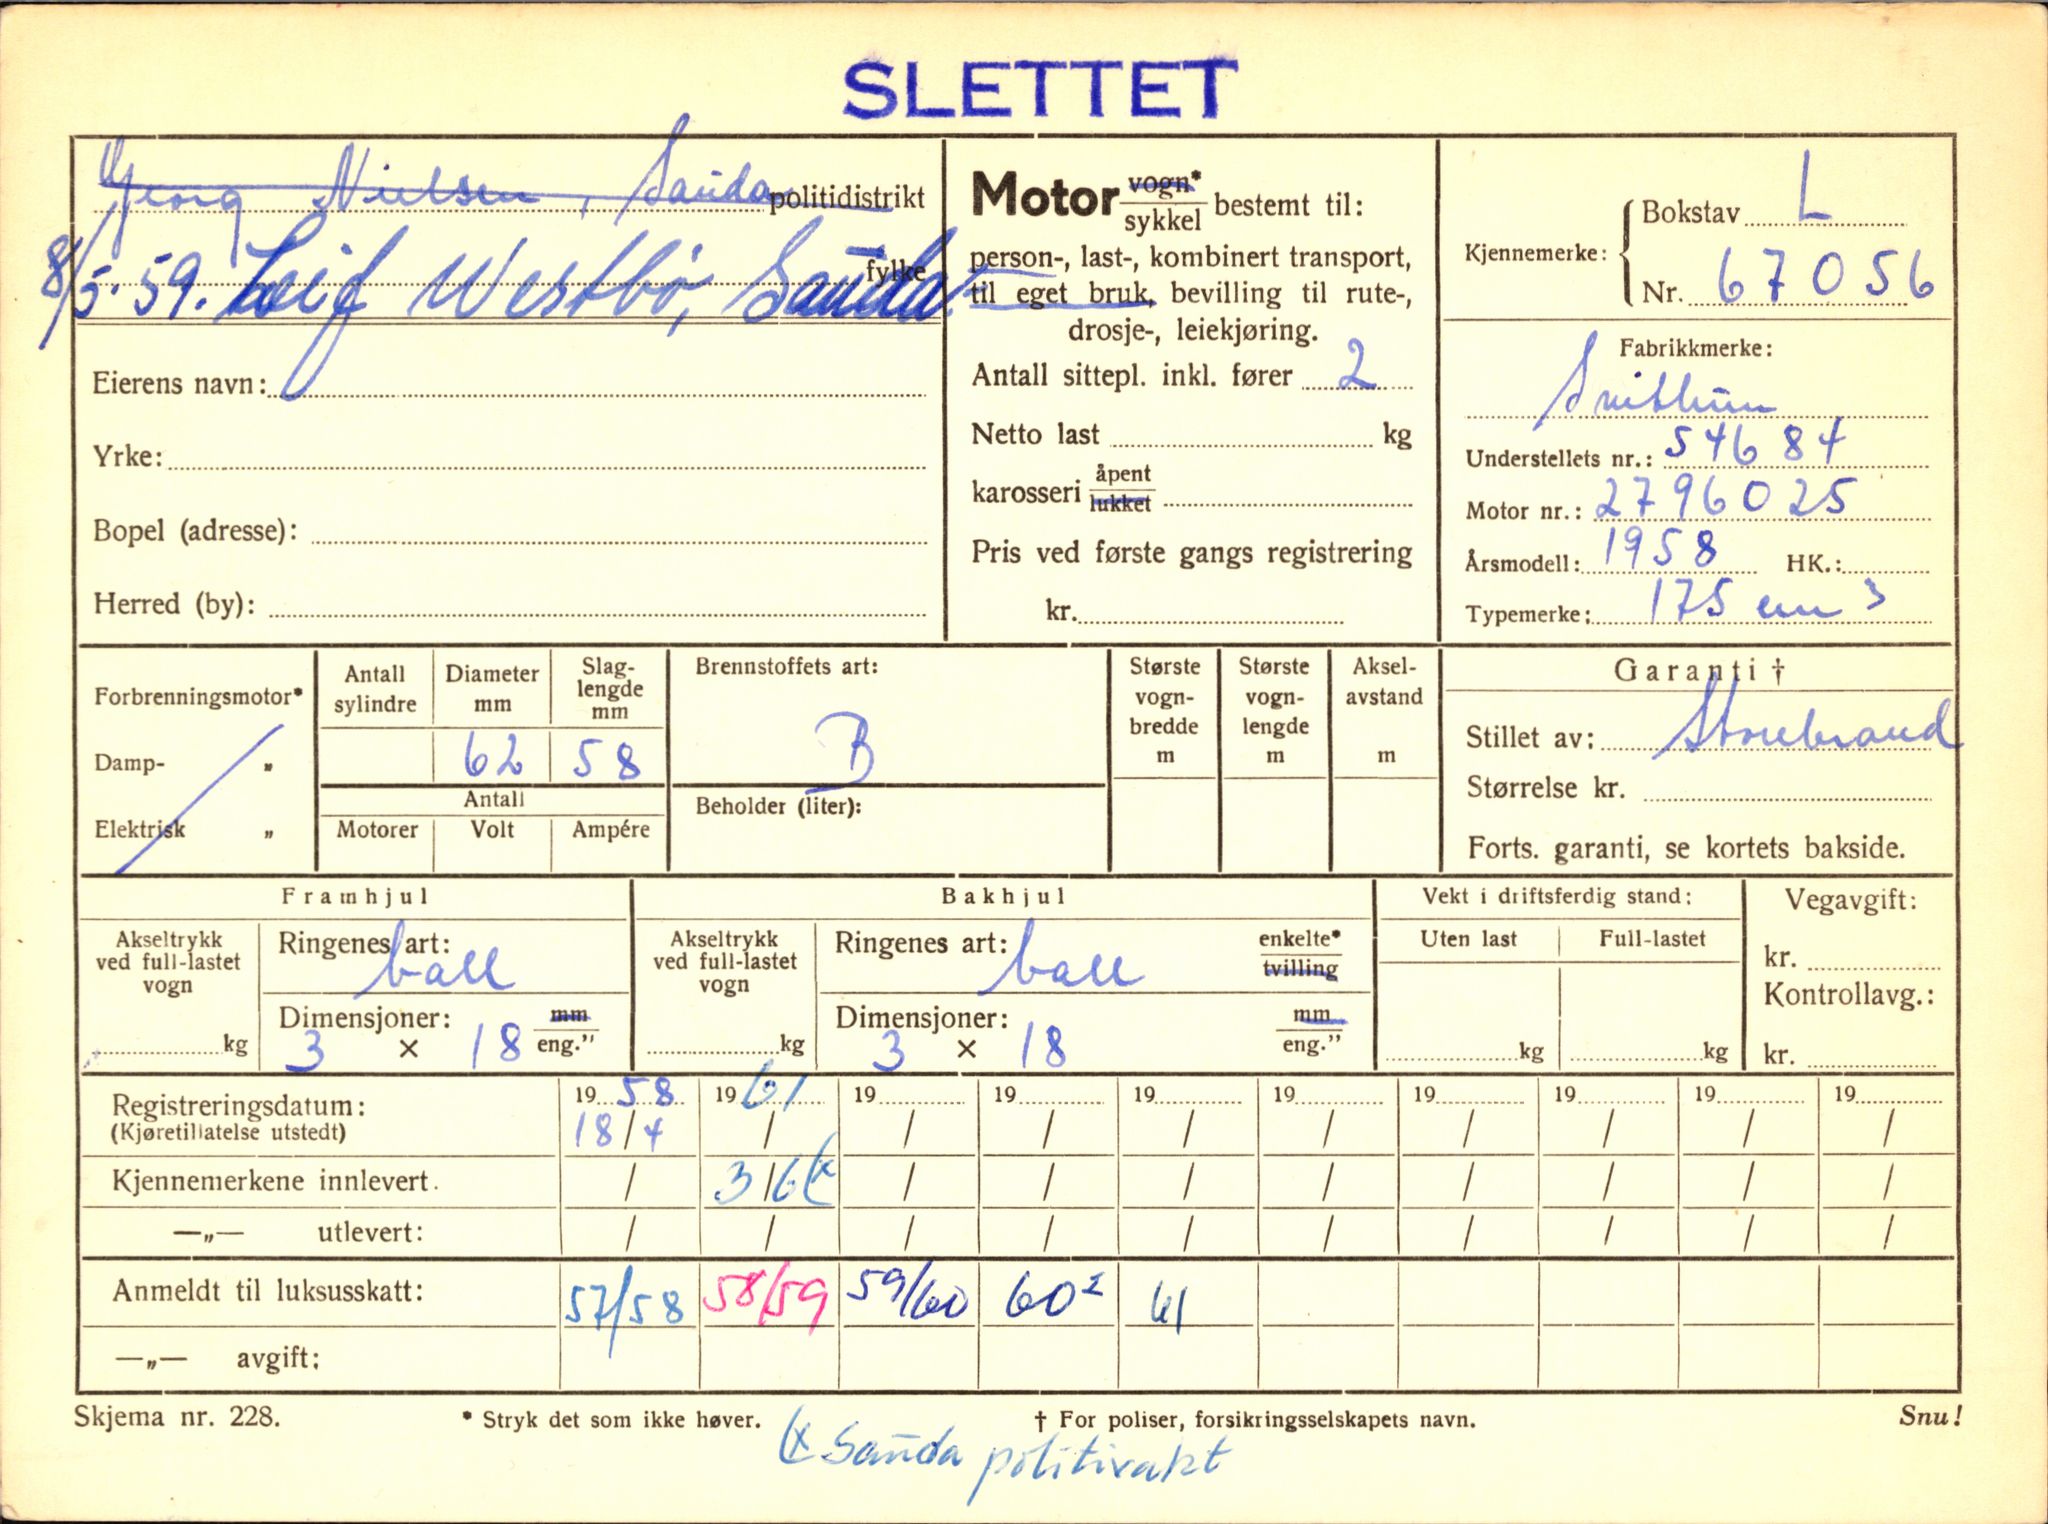 SLETTET
Georg Nielsen, Sauda politidistrikt
8/5-59. Leif Westbø, Sauda. fylke
Eierens navn:
Yrke:
Bopel (adresse):
Herred (by):
Motor vogn* / sykkel bestemt til:
person-, last-, kombinert transport,
til eget bruk, bevilling til rute-,
drosje-, leiekjøring.
Antall sittepl. inkl. fører 2
Netto last kg
karosseri åpent / lukket
Pris ved første gangs registrering
kr.
Kjennemerke: Bokstav L
Nr. 67056
Fabrikkmerke:
Svithun
Understellets nr.: 54684
Motor nr.: 2796025
Årsmodell: 1958 HK.:
Typemerke: 175 cm3
Forbrenningsmotor*
Damp- „
Elektrisk „
Antall sylindre
Diameter mm 62
Slag-lengde mm 58
Antall
Motorer Volt Ampére
Brennstoffets art:
B
Beholder (liter):
Største vogn-bredde m
Største vogn-lengde m
Aksel-avstand m
Garanti †
Stillet av: Storebrand
Størrelse kr.
Forts. garanti, se kortets bakside.
Framhjul
Akseltrykk ved full-lastet vogn kg
Ringenes art: ball
Dimensjoner: mm / eng."
3 × 18
Bakhjul
Akseltrykk ved full-lastet vogn kg
Ringenes art: ball enkelte* / tvilling
Dimensjoner: mm / eng."
3 × 18
Vekt i driftsferdig stand:
Uten last Full-lastet
kg kg
Vegavgift:
kr.
Kontrollavg.:
kr.
Registreringsdatum: 19 58 19 61 19 19 19 19 19 19 19 19
(Kjøretillatelse utstedt) 18/4 / / / / / / / / /
Kjennemerkene innlevert. / 3/6 (x / / / / / / / /
—„— utlevert: / / / / / / / / / /
Anmeldt til luksusskatt: 57/58 58/59 59/60 60² 61
—„— avgift:
Skjema nr. 228. * Stryk det som ikke høver. † For poliser, forsikringsselskapets navn. Snu!
(x Sauda politivakt